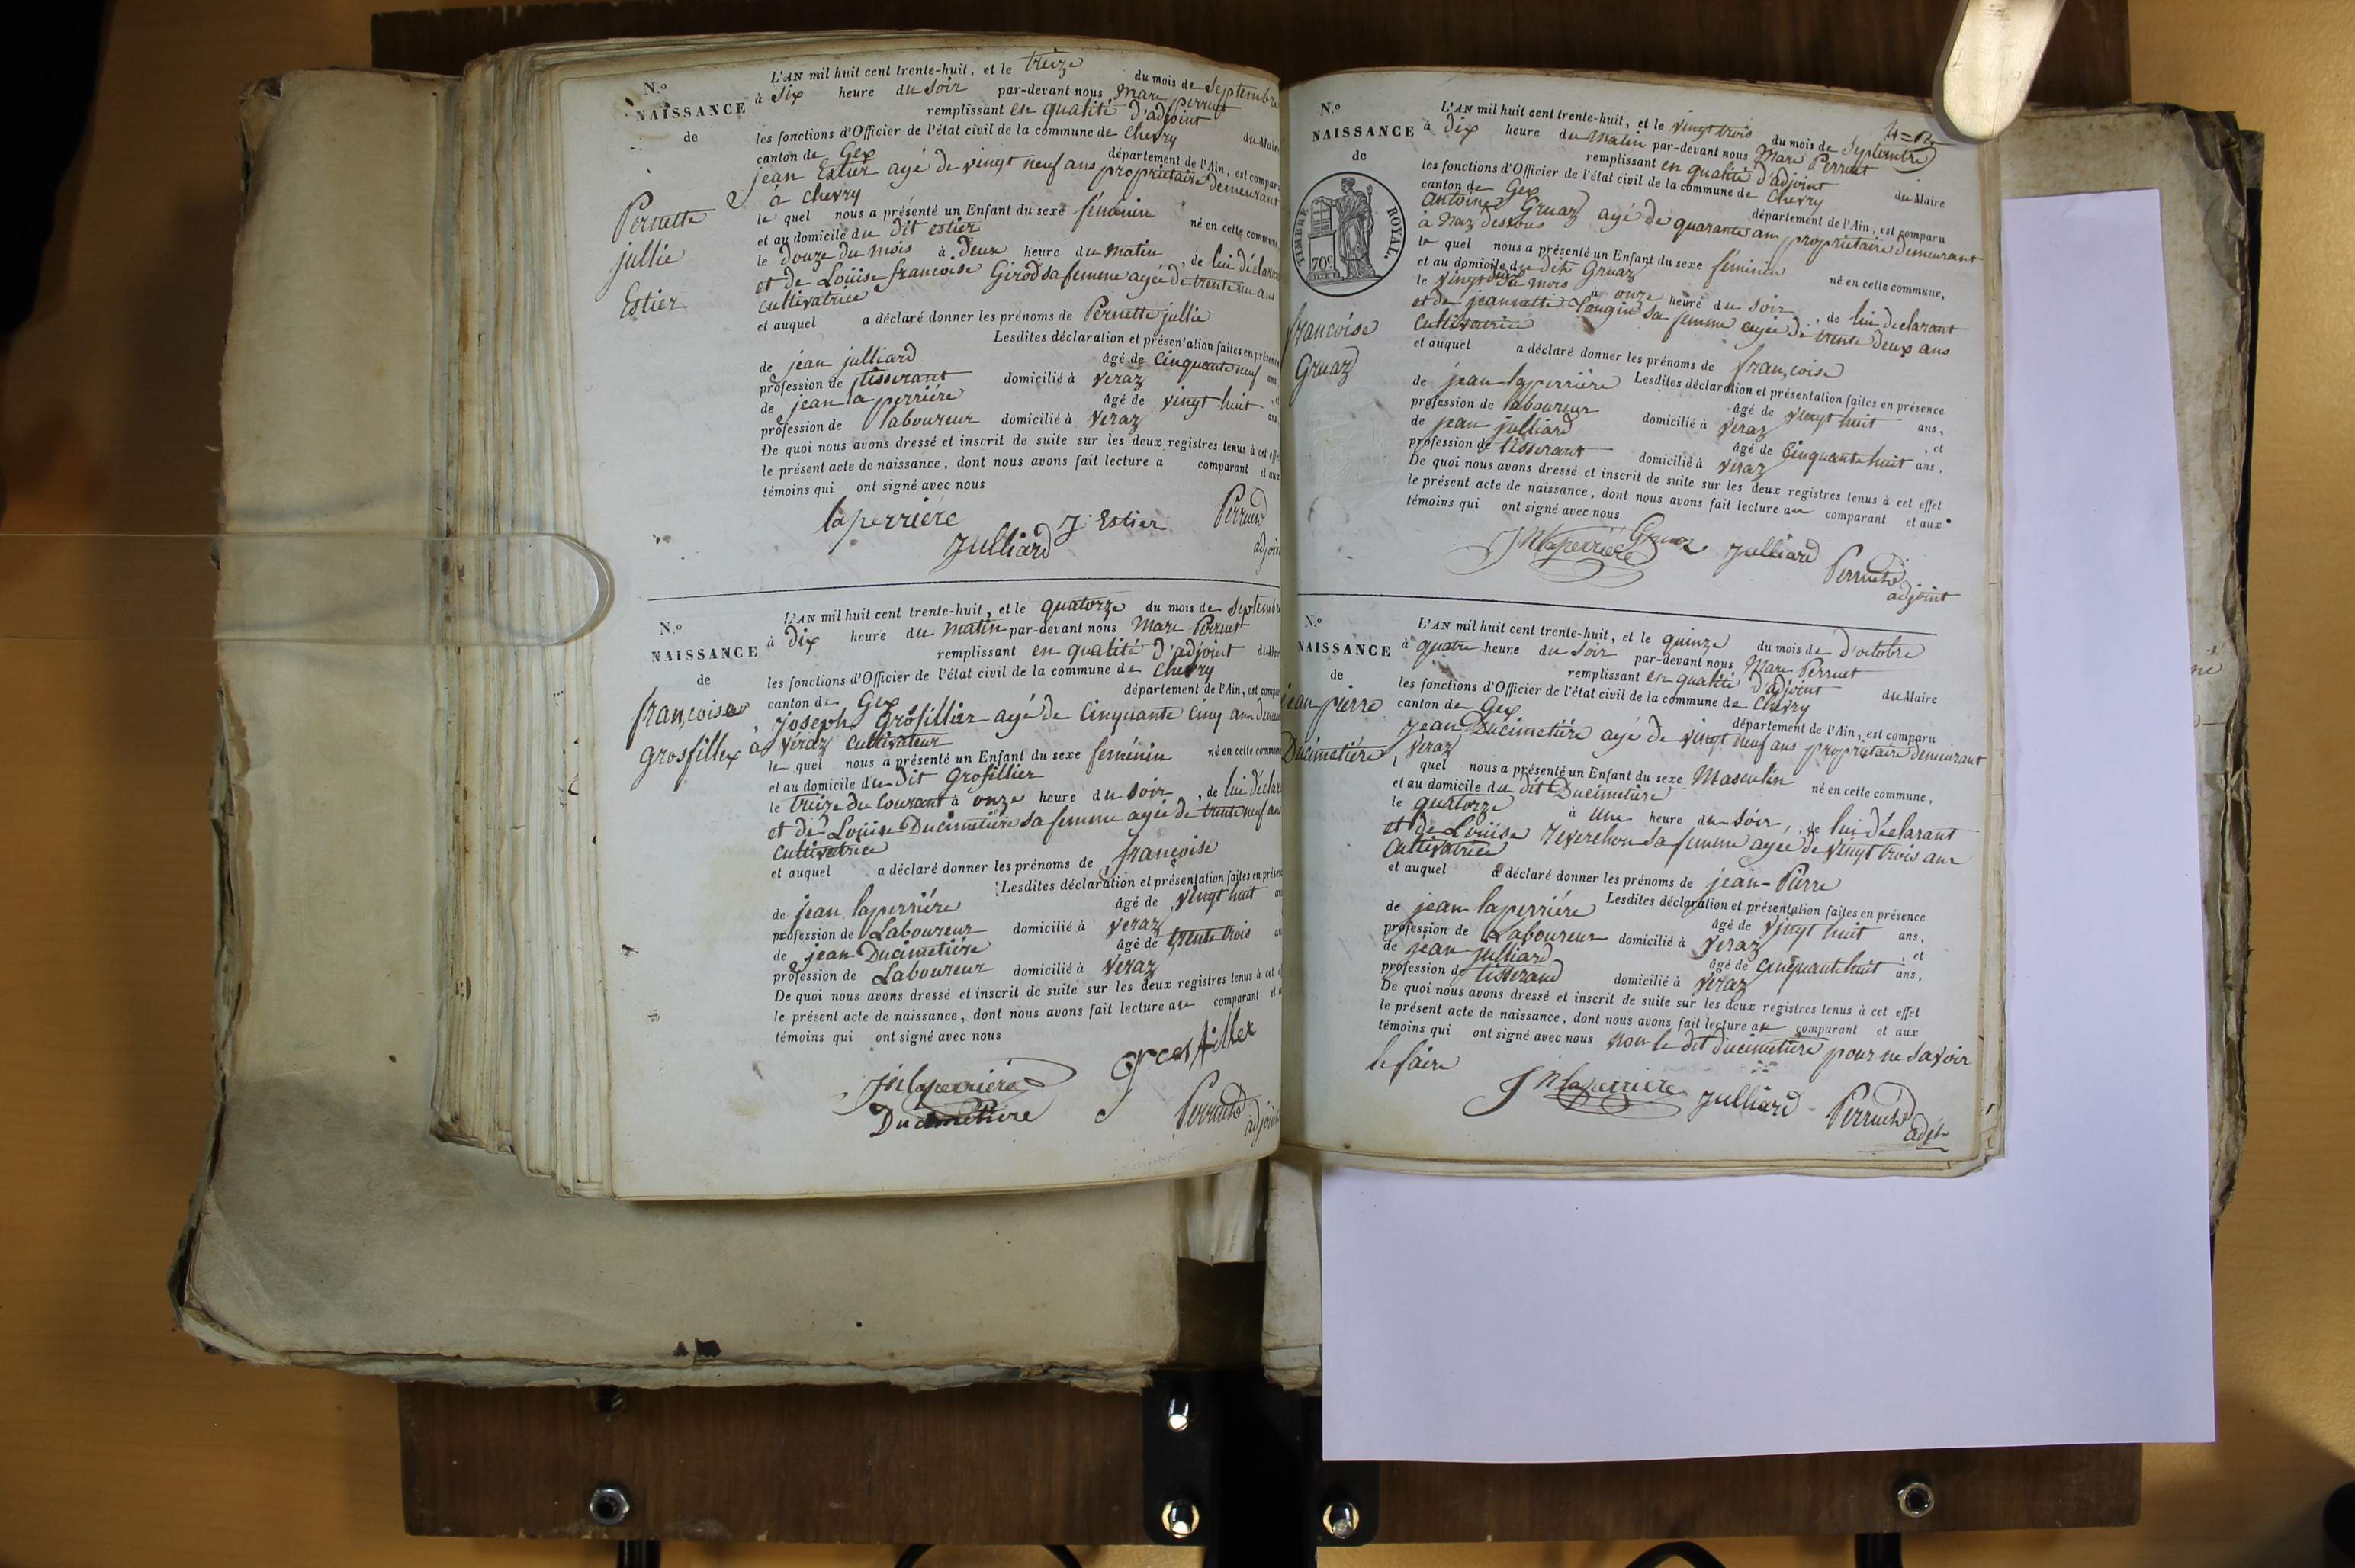 N.o
NAISSANCE
de
Pernette
jullie
Estier
L'AN mil huit cent trente-huit, et le treize du mois de Septembre
à six heure du soir par-devant nous Marc Perruet
remplissant en qualité d'adjoint du Maire
les fonctions d'Officier de l'état civil de la commune de Chevry
canton de Gex département de l'Ain, est compar
jean Estier agé de vingt neuf ans propriétaire demeurant
à Chevry
le quel nous a présenté un Enfant du sexe féminin né en celle commune,
et au domicile du dit estier
le douze du mois à deux heure du matin, de lui déclarant
et de Loüise françoise Girod sa femme agée de trente un ans
cultivatrice
et auquel a déclaré donner les prénoms de Pernette jullie
Lesdites déclaration et présentation failes en présence
de jean julliard âgé de Cinquante neuf ans
profession de tisserant domicilié à Veraz
de jean la perrière âgé de vingt-huit ans
profession de laboureur domicilié à Veraz
De quoi nous avons dressé et inscrit de suite sur les deux registres tenus à cet effet
le présent acte de naissance, dont nous avons fait lecture a comparant et aux
témoins qui ont signé avec nous
laperrière J. Estier Perruet
Julliard adjoin
N.o
NAISSANCE
de
françoise
grosfillex
L'AN mil huit cent trente-huit, et le quatorze du mois de Septembre
à dix heure du matin par-devant nous Marc Perruet
remplissant en qualité d'adjoint du Mair
les fonctions d'Officier de l'état civil de la commune de Chevry
canton de Gex département de l'Ain, est compar
joseph Grosfillier agé de Cinquante cinq ans demeur
à Veraz Cultivateur
le quel nous a présenté un Enfant du sexe feminin né en celle commune
et au domicile du dit Grosfillier
le treize du Courant à onze heure du soir, de lui déclar
et de Loüise Ducimetière sa femme agée de trente neuf ans
Cultivatrice
et auquel a déclaré donner les prénoms de françoise
Lesdites déclaration et présentation failes en présen
de jean laperrière âgé de vingt huit an
profession de Laboureur domicilié à Veraz
de jean Ducimetière âgé de trente trois an
profession de Laboureur domicilié à Veraz
De quoi nous avons dressé et inscrit de suite sur les deux registres tenus à cet e
le présent acte de naissance, dont nous avons fait lecture au comparant et a
témoins qui ont signé avec nous
grosfillex
Jn laperrière
Ducimetiere Perruet
adjoint
N.o
NAISSANCE
de
TIMBRE ROYAL.
70c
françoise
Gruaz
L'AN mil huit cent trente-huit, et le vingt trois du mois de Septembre
à dix heure du matin par-devant nous Marc Perruet
remplissant en qualité d'adjoint du Maire
les fonctions d'Officier de l'état civil de la commune de Chevry
canton de Gex département de l'Ain, est comparu
antoine Gruaz agé de quarante ans propriétaire demeurant
à Naz dessous
le quel nous a présenté un Enfant du sexe féminin né en celle commune,
et au domicile du dit Gruaz
le vingt du mois à onze heure du soir, de lui déclarant
et de jeannette Longin sa femme agée de trente deux ans
Cultivatrice
et auquel a déclaré donner les prénoms de françoise
Lesdites déclaration et présentation failes en présence
de jean laperrière âgé de vingt huit ans,
profession de laboureur domicilié à Veraz , et
de jean julliard âgé de Cinquante huit ans,
profession de tisserant domicilié à Veraz
De quoi nous avons dressé et inscrit de suite sur les deux registres tenus à cet effet
le présent acte de naissance, dont nous avons fait lecture au comparant et aux
témoins qui ont signé avec nous
Jn laperrière Gruaz Julliard Perruet
adjoint
N.o
NAISSANCE
de
jean pierre
Ducimetière
L'AN mil huit cent trente-huit, et le quinze du mois de d'octobre
à quatre heure du soir par-devant nous Marc Perruet
remplissant en qualité d'adjoint du Maire
les fonctions d'Officier de l'état civil de la commune de Chevry
canton de Gex département de l'Ain, est comparu
jean Ducimetière agé de vingt neuf ans propriétaire demeurant
Veraz
l quel nous a présenté un Enfant du sexe Masculin né en celle commune,
et au domicile du dit Ducimetière
le quatorze à une heure du soir, de lui déclarant
et de Loüise Reverchon sa femme agée de vingt trois ans
Cultivatrice
et auquel a déclaré donner les prénoms de jean-Pierre
Lesdites déclaration et présentation failes en présence
de jean laperrière âgé de vingt huit ans,
profession de Laboureur domicilié à Veraz , et
de jean julliard âgé de cinquante huit ans,
profession de tisserand domicilié à Veraz
De quoi nous avons dressé et inscrit de suite sur les deux registres tenus à cet effet
le présent acte de naissance, dont nous avons fait lecture au comparant et aux
témoins qui ont signé avec nous non le dit ducimetière pour ne savoir
le faire
Jn laperrière Julliard Perruet
adjt